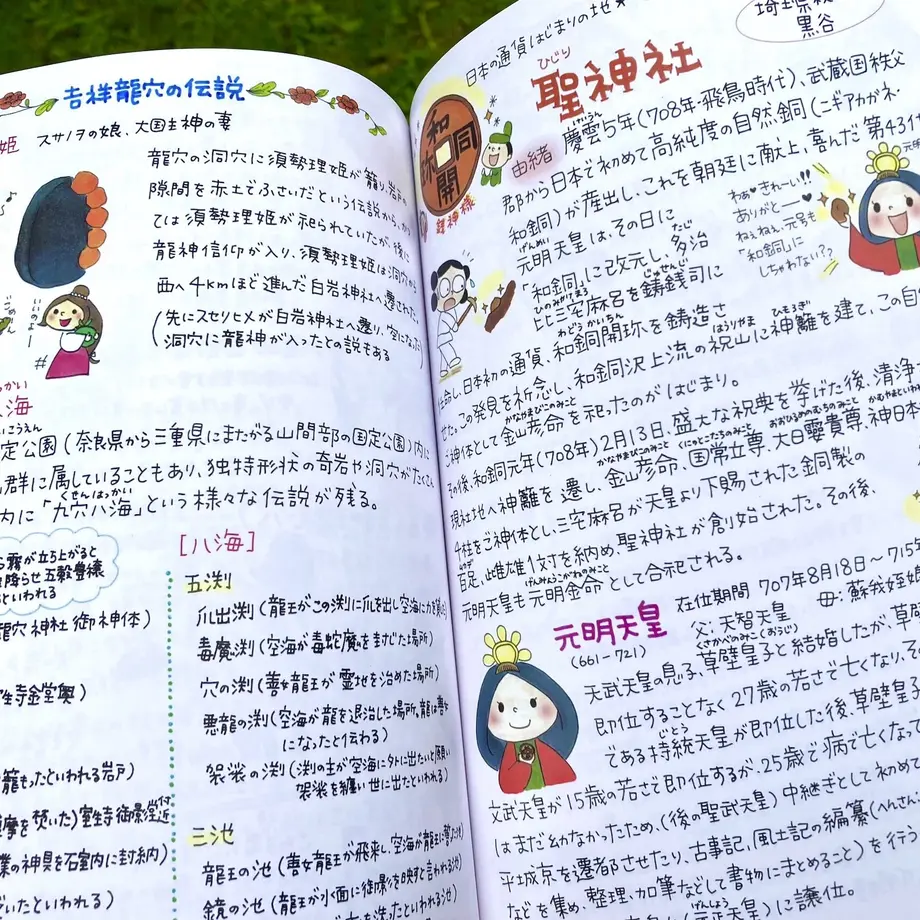 吉祥龍穴の伝説
姫 スサノヲの娘、大国主神の妻
龍穴の洞穴に須勢理姫が籠り、岩戸の
隙間を赤土でふさいだという伝説から、かつ
ては須勢理姫が祀られていたが、後に
龍神信仰が入り、須勢理姫は洞穴から
西へ4kmほど進んだ白岩神社へ遷された
(先にスセリヒメが白岩神社へ遷り、空になった
洞穴に龍神が入ったとの説もある
八海
定公園(奈良県から三重県にまたがる山間部の国定公園)内に
群に属していることもあり、独特形状の奇岩や洞穴がたくさん
内に「九穴八海」という様々な伝説が残る。
くせんはっかい
ら霧が立ち上がると
降らせ五穀豊穣
といわれる
龍穴神社御神体)
室生寺金堂奥)
籠もったといわれる岩戸)
護摩を焚いた)室生寺御影堂付近
業の神具を石室内に封納)
といわれる)
[八海]
五渕
爪出渕(龍王がこの渕に爪を出し空海に力を
毒魔渕(空海が毒蛇魔を封じた場所)
穴の渕(善女龍王が霊地を治めた場所)
悪龍の渕(空海が龍を退治した場所。龍は善女
になったと伝わる)
袈裟の渕(渕の主が空海に外に出たいと願い
袈裟を纏い世に出たといわれる)
三池
龍王の池(善女龍王が飛来し、空海が龍王に
鏡の池(龍王が水面に御影を映すと言われる池)
を洗ったといわれる池)
日本の通貨はじまりの地★
ひじり
聖神社
埼玉県秩父
黒谷
和同開珎
銭神様
由緒
けいうん
慶雲5年(708年・飛鳥時代)、武蔵国秩父
郡から日本で初めて高純度の自然銅(ニギアカガネ・
和銅)が産出し、これを朝廷に献上、喜んだ第43代
げんめい
元明天皇は、その日に
「和銅」に改元し、多治
たじ
ひのみやけまろ じゅせんし
比三宅麻呂を鋳銭司に
わどうかいちん
任命し、日本初の通貨、和銅開珎を鋳造さ
ほうりやま ひもろぎ
せた。この発見を祈念し、和銅沢上流の祝山に神籬を建て、この自
かなやまびこのみこと
ご神体として金山彦命を祀ったのがはじまり。
その後、和銅元年(708年)2月13日、盛大な祝典を挙げた後、清浄
かなやまびこのみこと くにのとこたちのみこと おおひるめのむちのみこと かむやまといわれ
現社地へ神籬を遷し、金山彦命、国常立尊、大日孁貴尊、神日本
4柱をご神体とし、三宅麻呂が天皇より下賜された銅製の
ムカデ
百足、雌雄1対を納め、聖神社が創始された。その後、
げんみょうこがねのみこと
元明天皇も元明金命として合祀される。
わぁ♪きれーい!!
ありがと――♥
ねぇねぇ、元号も
「和銅」に
しちゃわない??
元明天皇
(661-721)
在位期間 707年8月18日〜715年
父:天智天皇 母:蘇我姪娘
くさかべのみこ(おうじ)
天武天皇の息子、草壁皇子と結婚したが、草
即位することなく27歳の若さで亡くなり、そ
じとう
である持統天皇が即位した後、草壁皇
文武天皇が15歳の若さで即位するが、25歳で病で亡くなって
はまだ幼かなかったため、(後の聖武天皇)中継ぎとして初めて
平城京を遷都させたり、古事記、風土記の編纂(へんさん
などを集め、整理、加筆などして書物にまとめること)を行う
げんしょう
(元正天皇)に譲位。